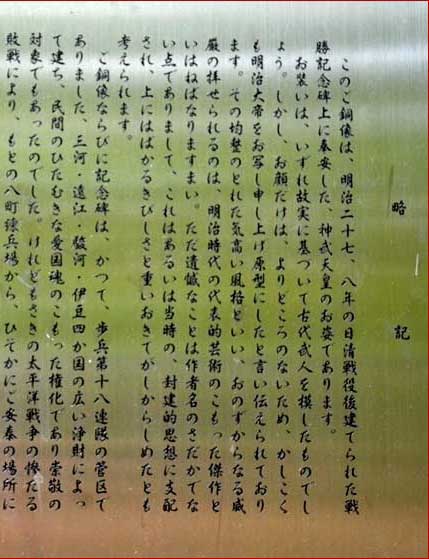 略記
このご銅像は、明治二十七、八年の日清戦役後建てられた戦
勝記念碑上に奉安した、神武天皇のお姿であります。
お装いは、いずれ故実に基づいて古代武人を模したものでし
ょう。しかし、お顔だけは、よりどころのないため、かしこく
も明治大帝をお写し申し上げ原型にしたと言い伝えられており
ます。その均整のとれた気高い風格といい、おのずからなる威
厳の拝せられるのは、明治時代の代表的芸術のこもった傑作と
いはねばなりますまい。ただ遺憾なことは作者名のさだかでな
い点でありまして、これはあるいは当時の、封建的思想に支配
され、上にははかるきびしさと重いおきてがしからしめたとも
考えられます。
ご銅像ならびに記念碑は、かつて、歩兵第十八連隊の管区で
ありました、三河・遠江・駿河・伊豆四か国の広い浄財によっ
て建ち、民間のひたむきな愛国魂のこもった権化であり崇敬の
対象でもあったのでした。けれどもさきの太平洋戦争の惨たる
敗戦により、もとの八町練兵場から、ひそかにご安泰の場所に